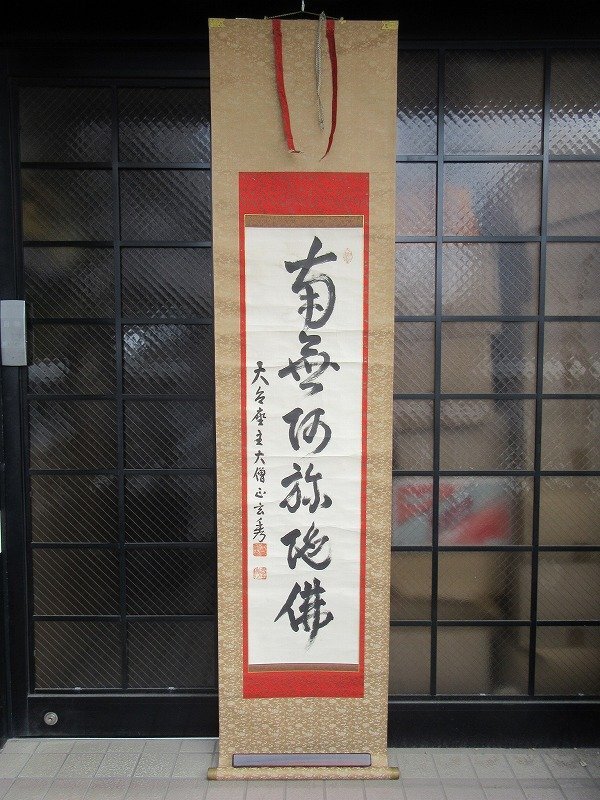 南無阿弥陀佛
天台座主大僧正玄秀